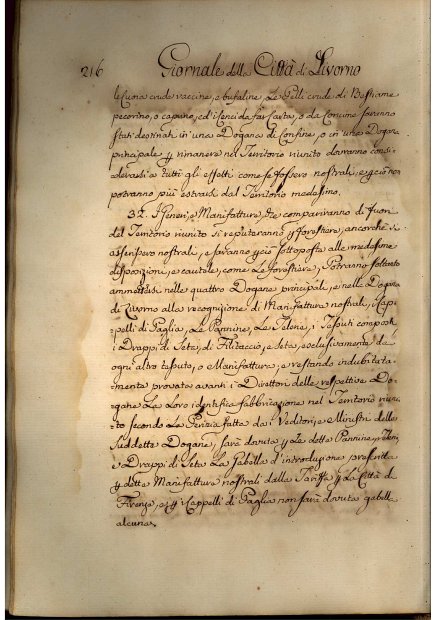 216 Giornale della Città di Livorno
le Cuoia crude vaccine, e bufaline, Le Pelli crude di Bestiame
pecorino, o caprino, ed i Cenci da far Carta, o da Concime saranno
stati destinati in una Dogana di Confine, o in una Dogana
principale p rimanere nel Territorio riunito dovranno consi-
derarsi a tutti gli effetti come se fossero nostrali, e p ciò non
potranno più estrarsi dal Territorio medesimo.
32. I Generi, e Manifatture, che compariranno di fuori
del Territorio riunito si reputeranno p forestiere, ancorché si
asserissero nostrali, e saranno p ciò sottoposte alle medesime
disposizioni, e cautele, come Le forestiere; Potranno soltanto
ammettersi nelle quattro Dogane principali, e nella Dogana
di Livorno alla recognizione di Manifatture nostrali, i Cap-
pelli di Paglia, Le Pannine, Le Telerie, i Tessuti composti,
i Drappi di Seta, di Filaticcio, e Seta, esclusivamente da
ogni altro tessuto, o Manifattura, e restando indubitata-
mente provata avanti i Direttori delle respettive Do-
gane La Loro identifica fabbricazione nel Territorio riuni-
to secondo Le Perizia fatta da i Veditori, e Ministri delle
suddette Dogane, sarà dovuta p Le dette Pannine,
e Drappi di Seta La Gabella d'introduzione prescritta
p dette Manifatture nostrali dalla Tariffa p La Città di
Firenze, e p i Cappelli di Paglia non sarà dovuta gabella
alcuna.